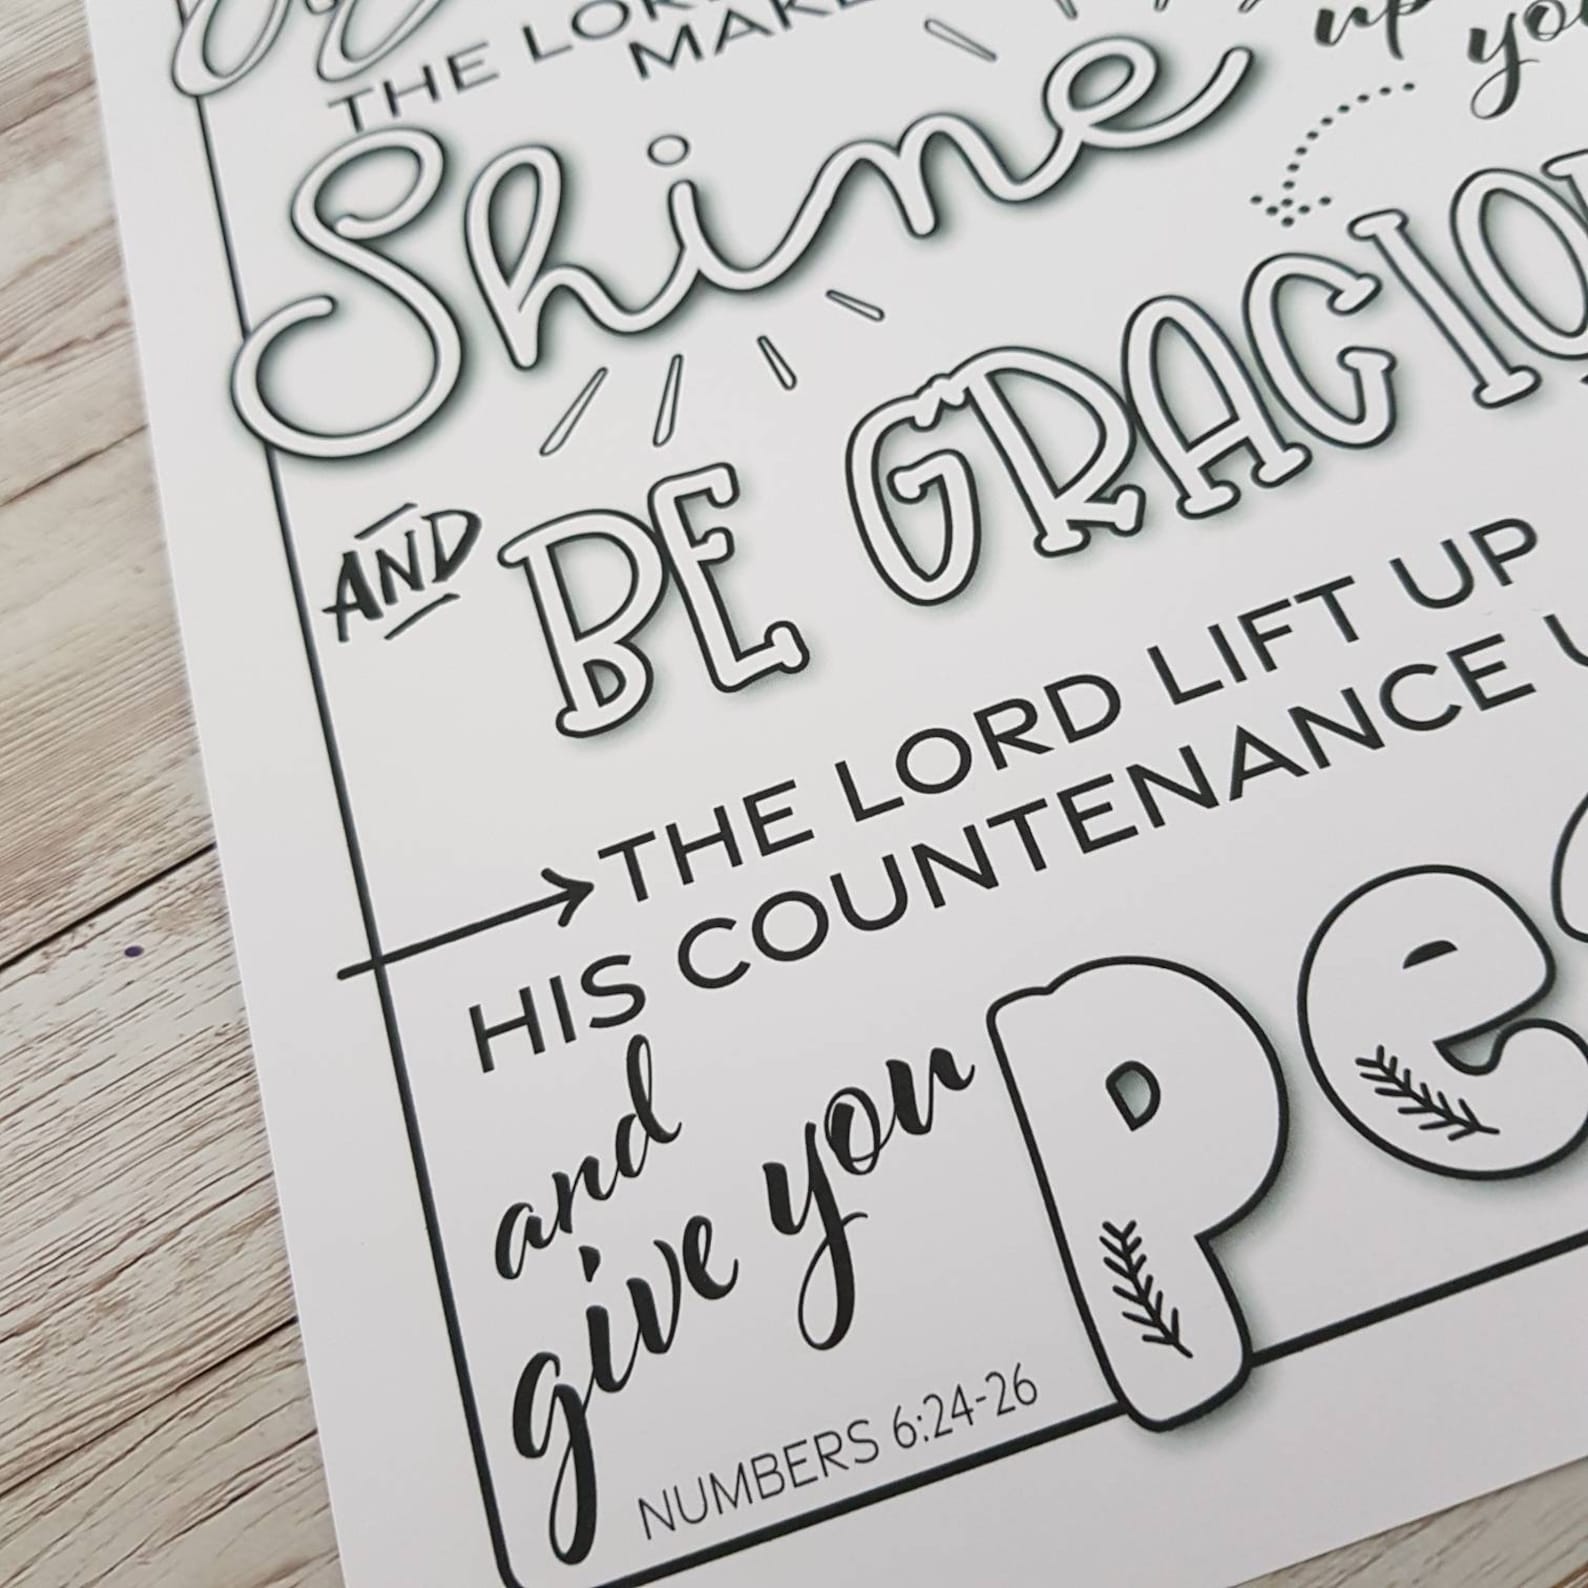 THE LORD
MAKE
Shine
up
you
AND BE GRACIOU
THE LORD LIFT UP
HIS COUNTENANCE U
and
give you Pea
NUMBERS 6:24-26